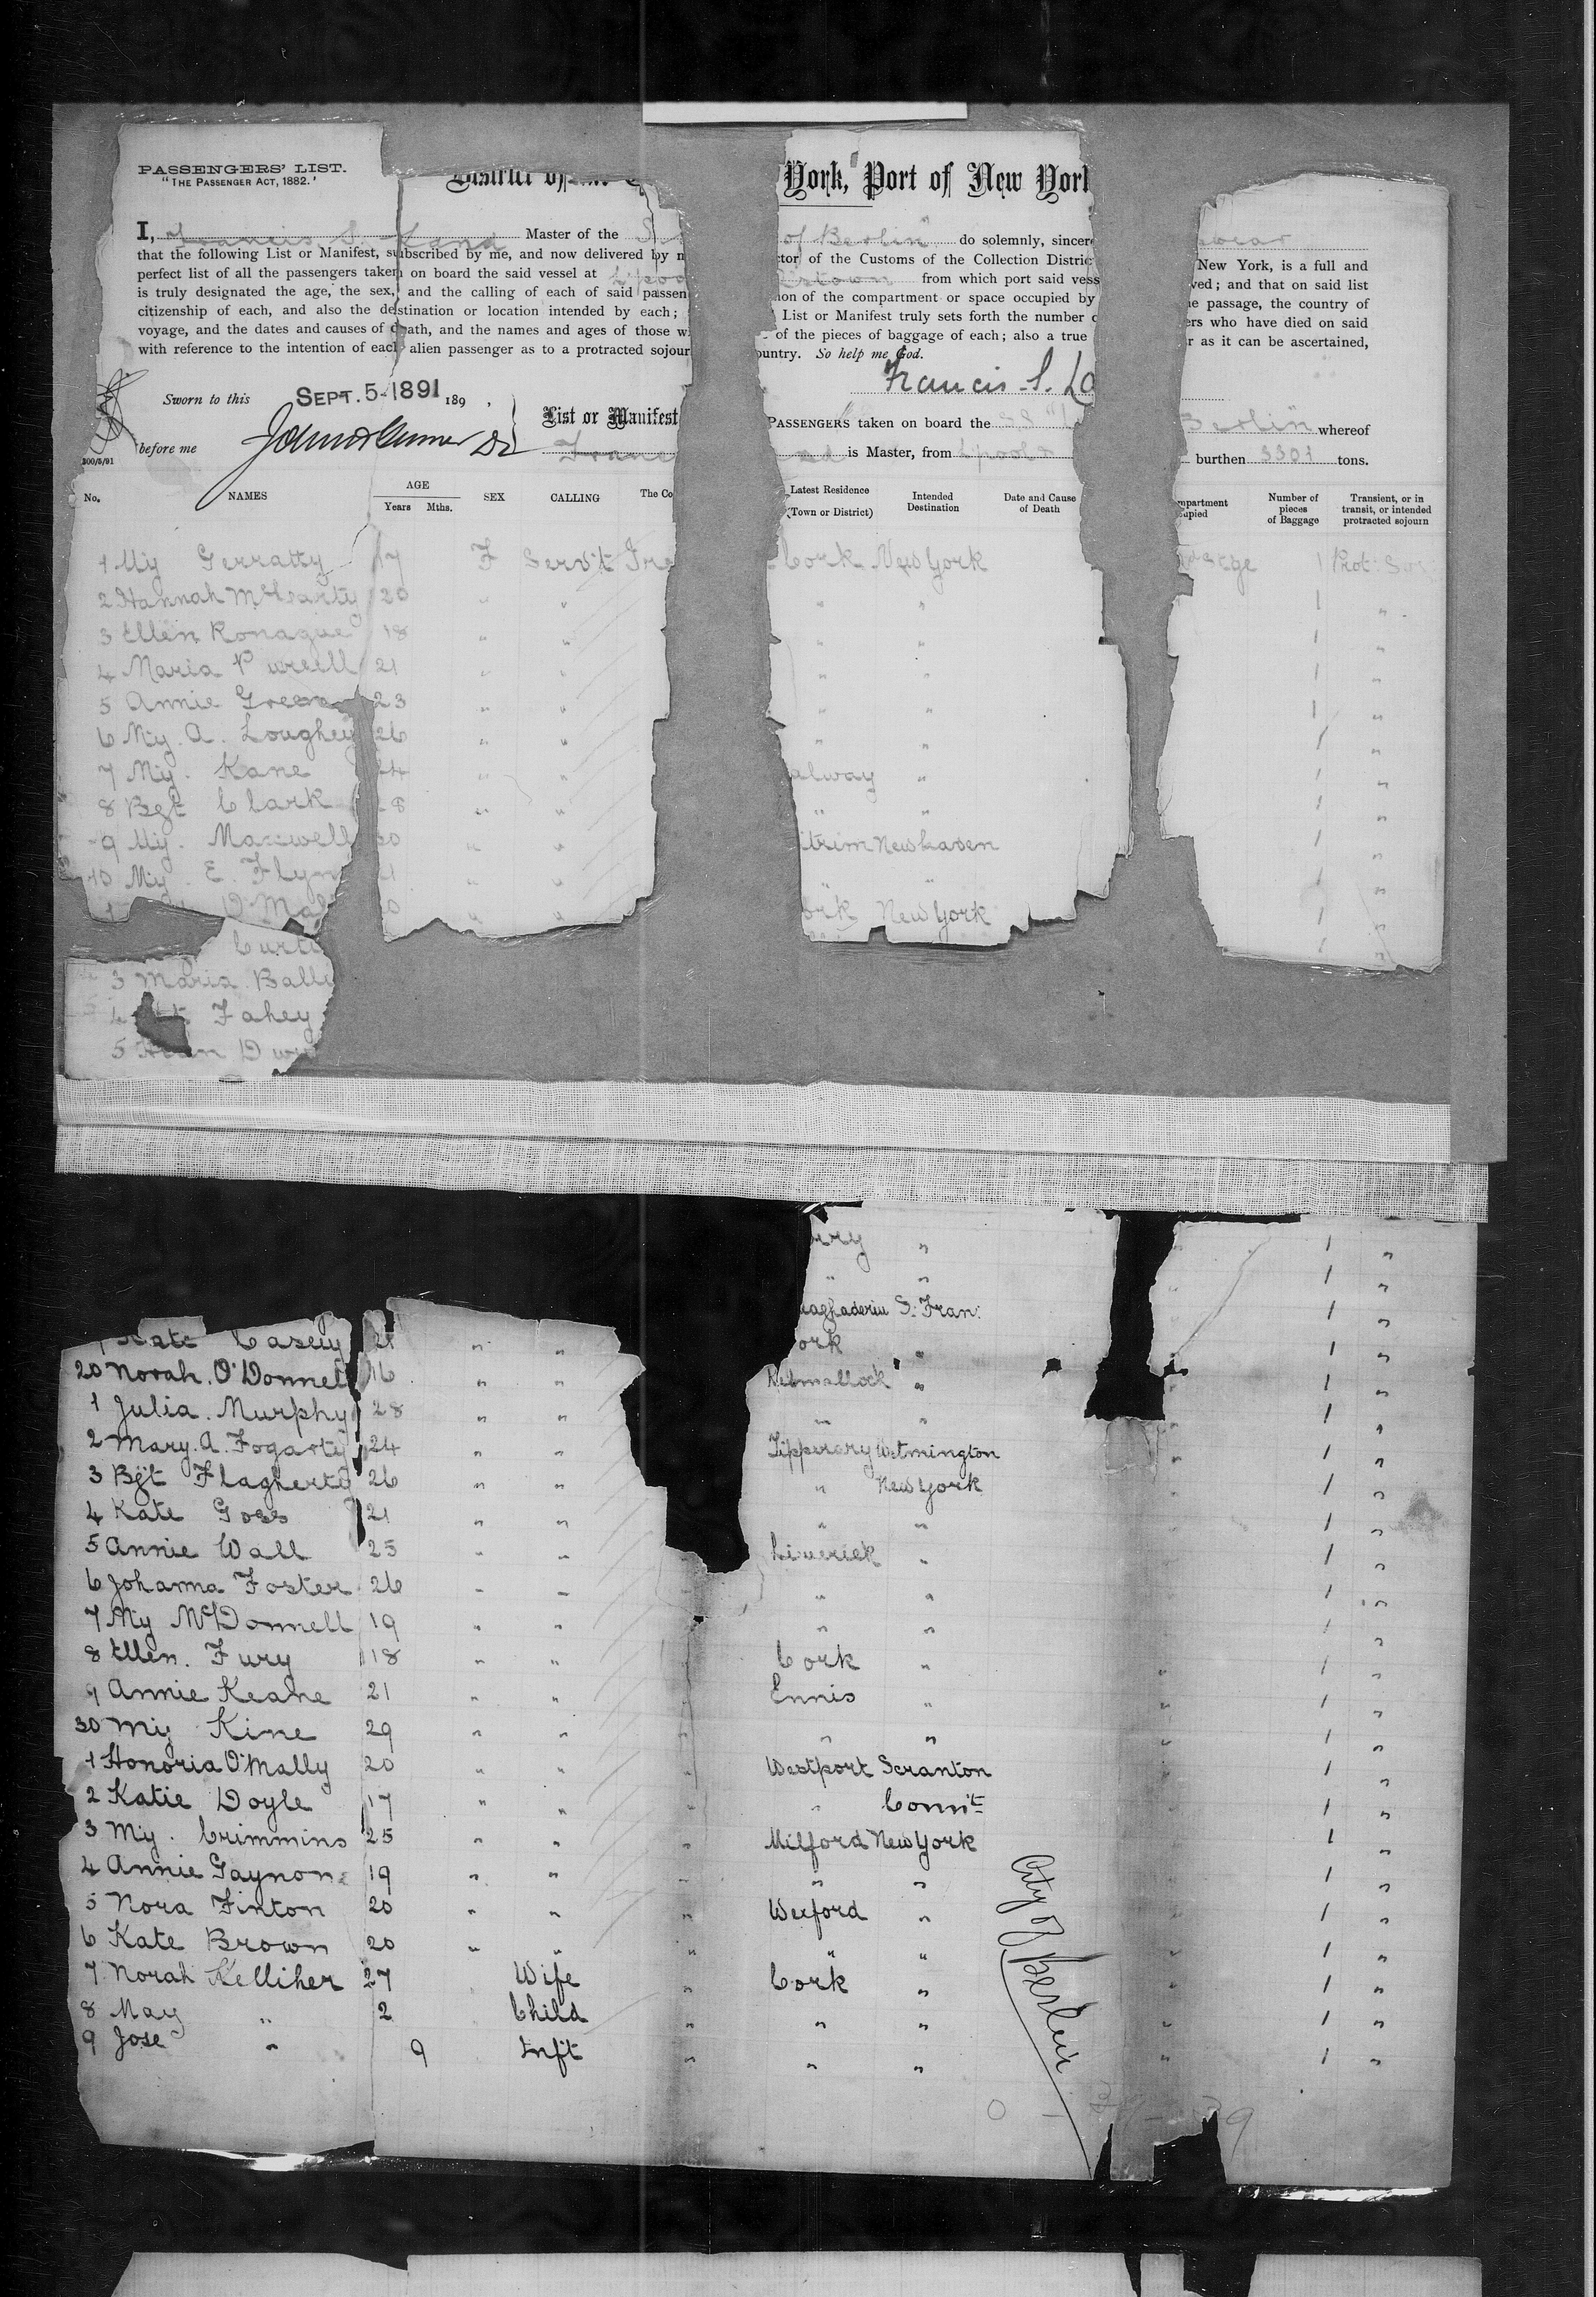 PASSENGERS' LIST.
"THE PASSENGER ACT, 1882."
District of York, Port of New York
I, Francis S. Land Master of the S of Berlin" do solemnly, sincere swear
that the following List or Manifest, subscribed by me, and now delivered by m ctor of the Customs of the Collection Distric New York, is a full and
perfect list of all the passengers taken on board the said vessel at Lpool stown from which port said vess ved; and that on said list
is truly designated the age, the sex, and the calling of each of said passen ion of the compartment or space occupied by e passage, the country of
citizenship of each, and also the destination or location intended by each; List or Manifest truly sets forth the number o ers who have died on said
voyage, and the dates and causes of death, and the names and ages of those w of the pieces of baggage of each; also a true r as it can be ascertained,
with reference to the intention of each alien passenger as to a protracted sojour ountry. So help me God.
Francis S. La
Sworn to this SEPT. 5-1891 189 ,
before me
300/5/91
List or Manifest PASSENGERS taken on board the SS " Berlin" whereof
Franc is Master, from Lpool & burthen 3301 tons.
No. NAMES AGE Years Mths. SEX CALLING The Co Latest Residence (Town or District) Intended Destination Date and Cause of Death mpartment upied Number of pieces of Baggage Transient, or in transit, or intended protracted sojourn
1 My Gerratty 17 F Serv't Ire Cork New York stge 1 Prot: Soj
2 Hannah McHearty 20 " " " " 1 "
3 Ellen Ronague 18 " " " " 1 "
4 Maria Purcell 21 " " " " 1 "
5 Annie Green 23 " " " " 1 "
6 My. A. Loughey 26 " " " " 1 "
7 My. Kane 24 " " alway " 1 "
8 Bgt Clark 28 " " " " 1 "
9 My. Maxwell 30 " " itrim Newhaven 1 "
10 My. E. Flyn 1 " " " 1 "
1 O'Mal 0 " " ork New York 1 "
Curti
3 Maria Balle
4 Fahey
5 Dwy
ury " 1 "
" " 1 "
aghaderin S. Fran: 1 "
Kate Casey 21 " " ork " 1 "
20 Norah. O'Donnell 16 " " Kilmallock " 1 "
1 Julia. Murphy 28 " " " " 1 "
2 Mary. A. Fogarty 24 " " Tipperary Wilmington " 1 "
3 Bgt Flagherty 26 " " " New York 1 "
4 Kate Goss 21 " " " " 1 "
5 Annie Wall 25 " " Limerick " 1 "
6 Johanna Foster 26 " " " " 1 "
7 My McDonnell 19 " " " " 1 "
8 Ellen. Fury 18 " " Cork " 1 "
9 Annie Keane 21 " " " Ennis " " 1 "
30 My Kine 29 " " " " " " 1 "
1 Honoria O'Mally 20 " " " Westport Scranton " 1 "
2 Katie Doyle 17 " " " " Conn't " 1 "
3 My. Crimmins 25 " " " Milford New York " 1 "
4 Annie Gaynon 19 " " " " " 1 "
5 Nora Finton 20 " " " Wexford " " 1 "
6 Kate Brown 20 " " " " " " 1 "
7 Norah Kelliher 27 Wife " Cork " " 1 "
8 May " 2 Child " " " " 1 "
9 Jose " 9 Inft " " " " 1 "
City of Berlin